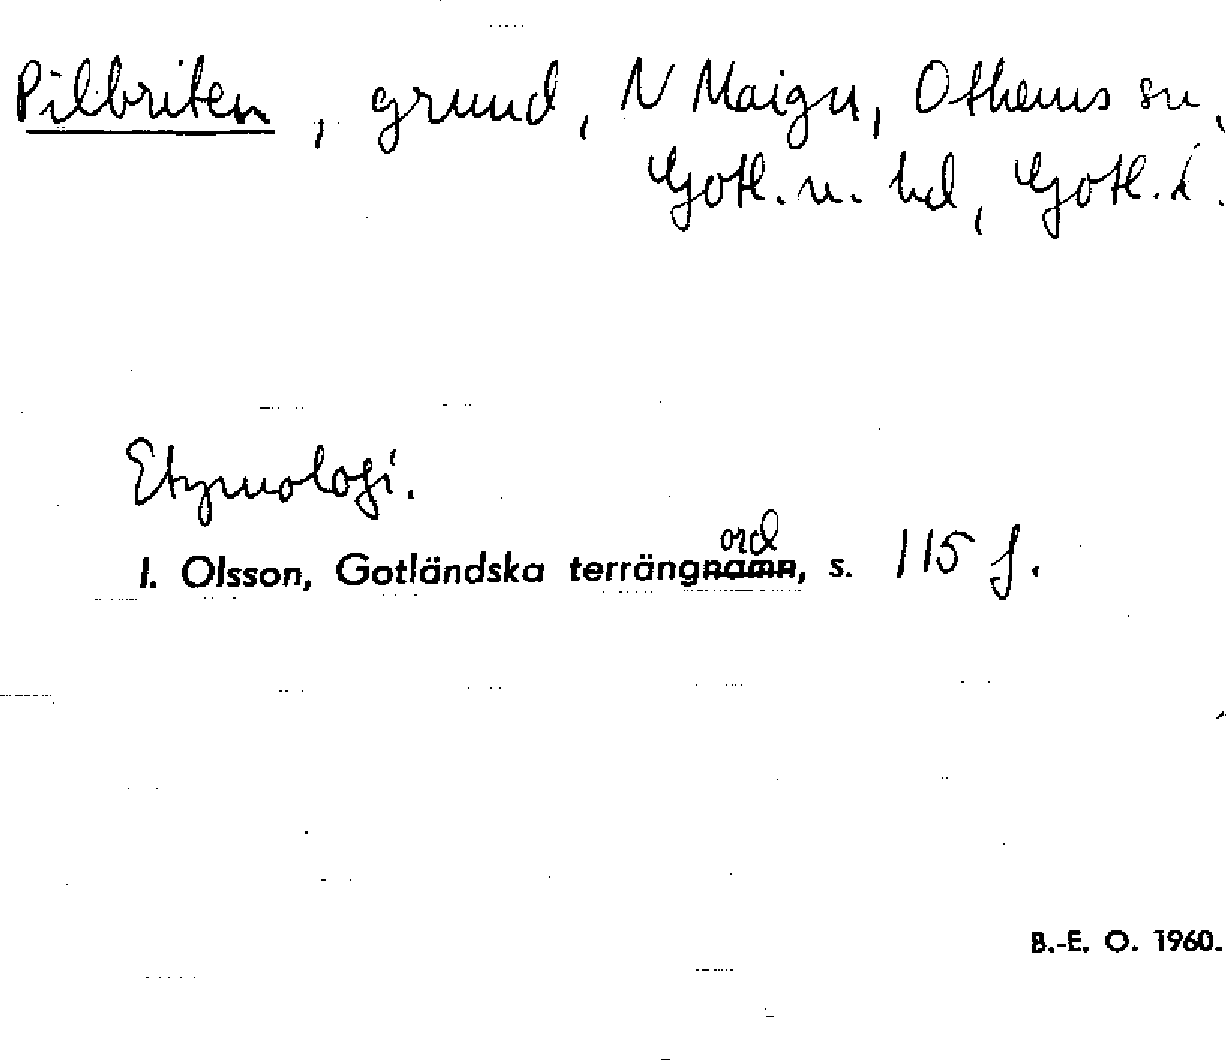 Pilbriten, grund, N Maign, Othems sn,
Gotl. n. hd, Gotl. l.
Etymologi.
I. Olsson, Gotländska terrängord, s. 115 f.
B.-E. O. 1960.